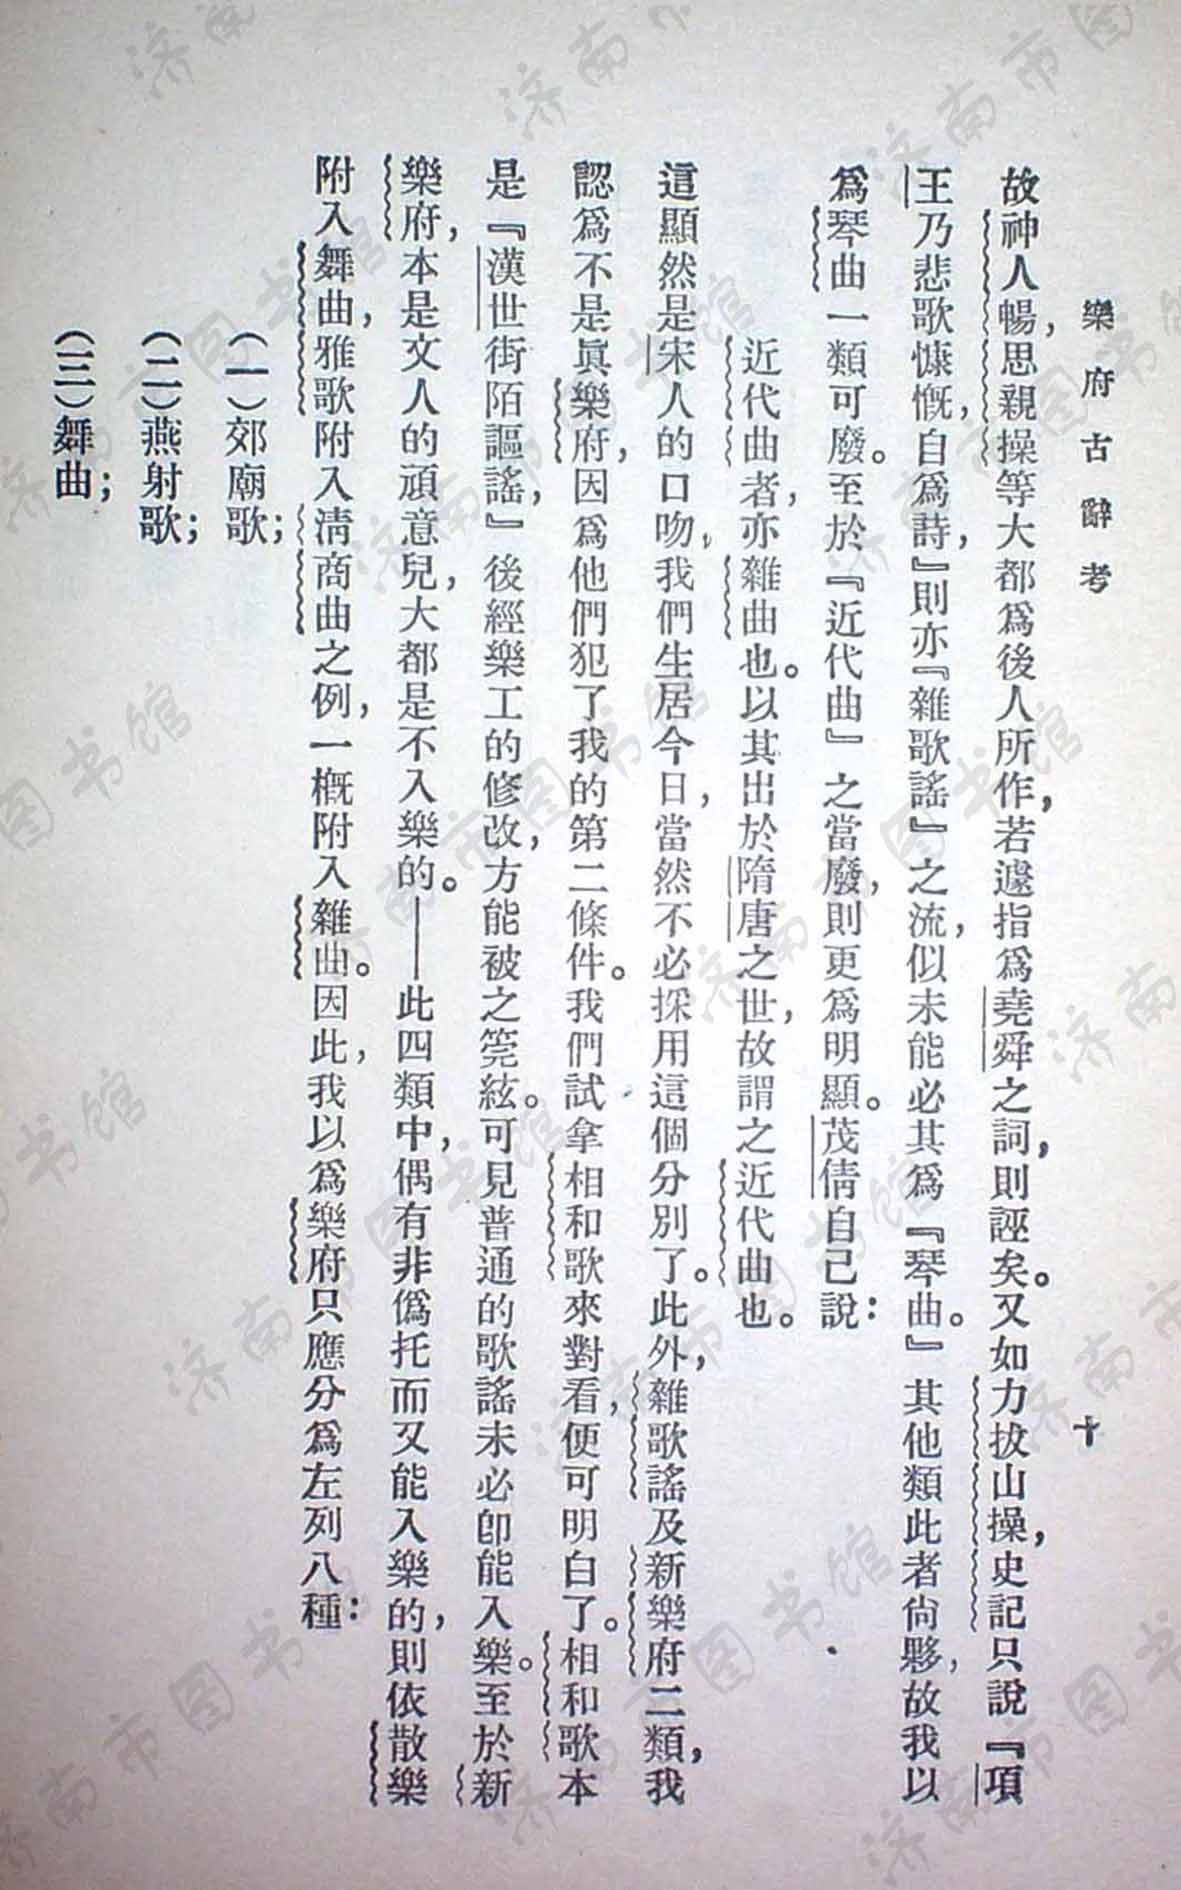 樂府古辭考
十
故神人暢，思親操等大都爲後人所作，若遽指爲堯舜之詞，則誣矣。又如力拔山操，史記只說『項
王乃悲歌慷慨，自爲詩，』則亦『雜歌謠』之流，似未能必其爲『琴曲。』其他類此者尙夥，故我以
爲琴曲一類可廢。至於『近代曲』之當廢，則更爲明顯。茂倩自己說：
近代曲者，亦雜曲也。以其出於隋唐之世，故謂之近代曲也。
這顯然是宋人的口吻，我們生居今日，當然不必採用這個分別了。此外，雜歌謠及新樂府二類，我
認爲不是眞樂府，因爲他們犯了我的第二條件。我們試拿相和歌來對看，便可明白了。相和歌本
是『漢世街陌謳謠，』後經樂工的修改，方能被之筦絃。可見普通的歌謠未必卽能入樂。至於新
樂府，本是文人的頑意兒，大都是不入樂的。——此四類中，偶有非僞托而又能入樂的，則依散樂
附入舞曲，雅歌附入淸商曲之例，一槪附入雜曲。因此，我以爲樂府只應分爲左列八種：
（一）郊廟歌；
（二）燕射歌；
（三）舞曲；
济南市图书馆